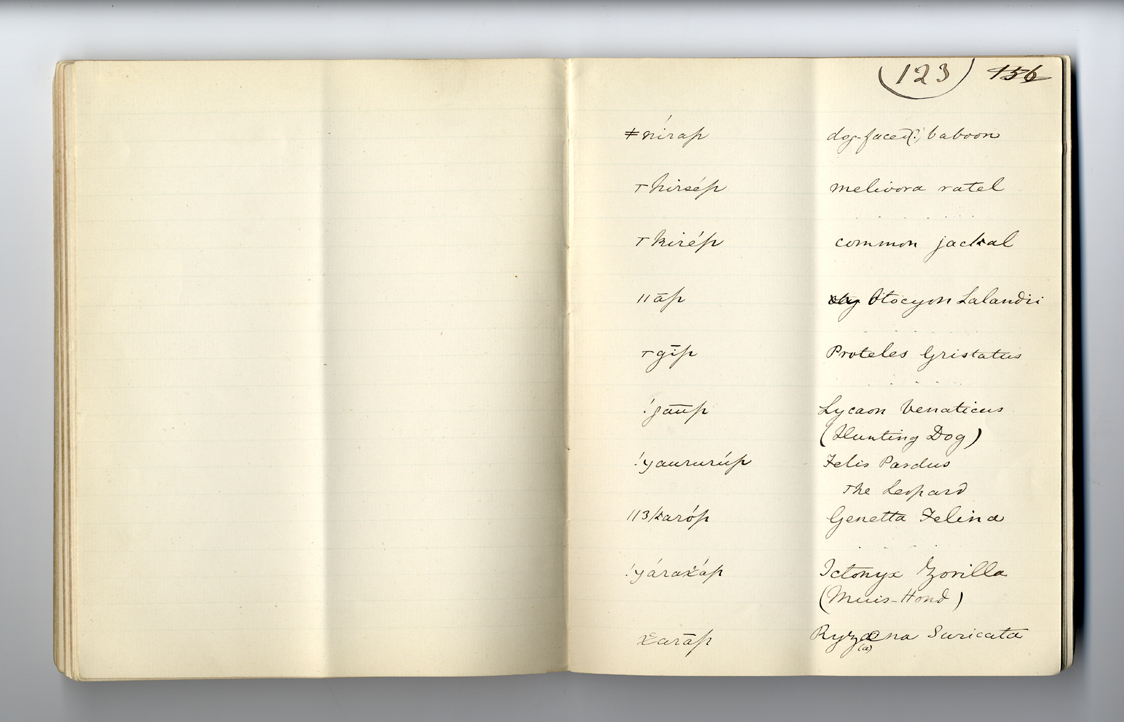 (123) 156
ǂnírap dog-faced(?) baboon
τhirsép melivora ratel
τkirép common jackal
ǁāp Otocyon Lalandii
τgīp Proteles Cristatus
!gāūp Lycaon Venaticus
(Hunting Dog)
!yaururúp Felis Pardus
The Leopard
Genetta Felina
!yáraxáp Ictonyx Zorilla
(Muis-Hond)
Ryzæna Suricata
(a)